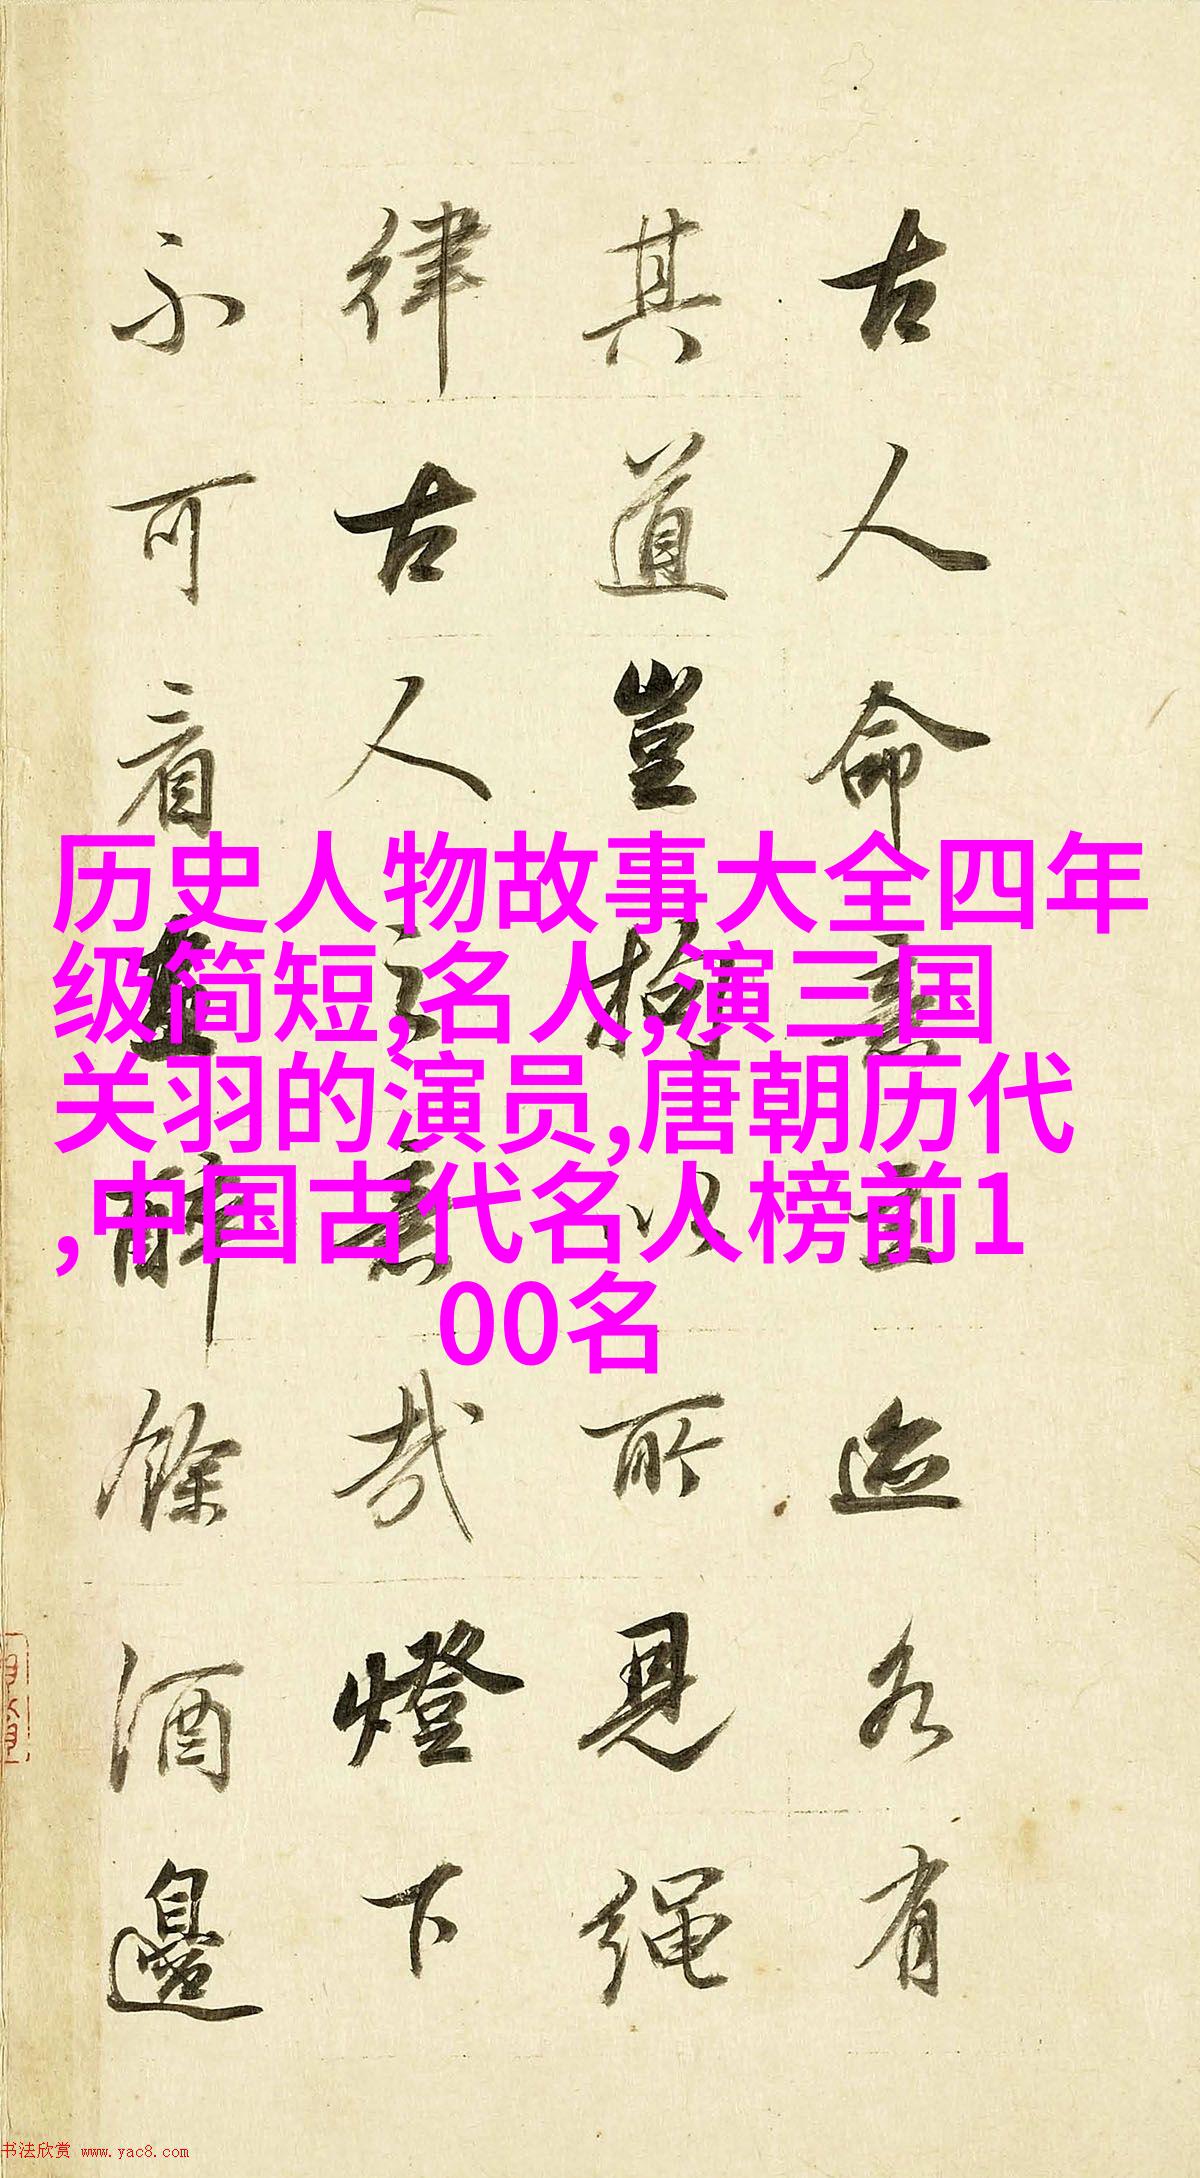 古人命意立迹各有
其道豈拘以所見繩
律古人之意哉燈下
不可看畫醉餘酒邊
历史人物故事大全四年
级简短,名人,演三国
关羽的演员,唐朝历代
,中国古代名人榜前1
00名
书法欣赏 www.yac8.com